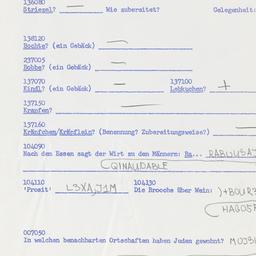 136080
Striezel? — Wie zubereitet? Gelegenheit:
138120
Bochte? (ein Gebäck) —
237005
Bobbe? (ein Gebäck) —
137070 137100
Kindl? (ein Gebäck) — Lebkuchen? +
137150
Krapfen? —
137160
Kräpfchen/Kräpflein? (Benennung? Zubereitungsweise?) —
104090
Nach dem Essen sagt der Wirt zu den Männern: Ra...
QINAUDABLE
104110 104130
'Prosit' L3XAJ1M Die Broche über Wein:
007050
In welchen benachbarten Ortschaften haben Juden gewohnt?